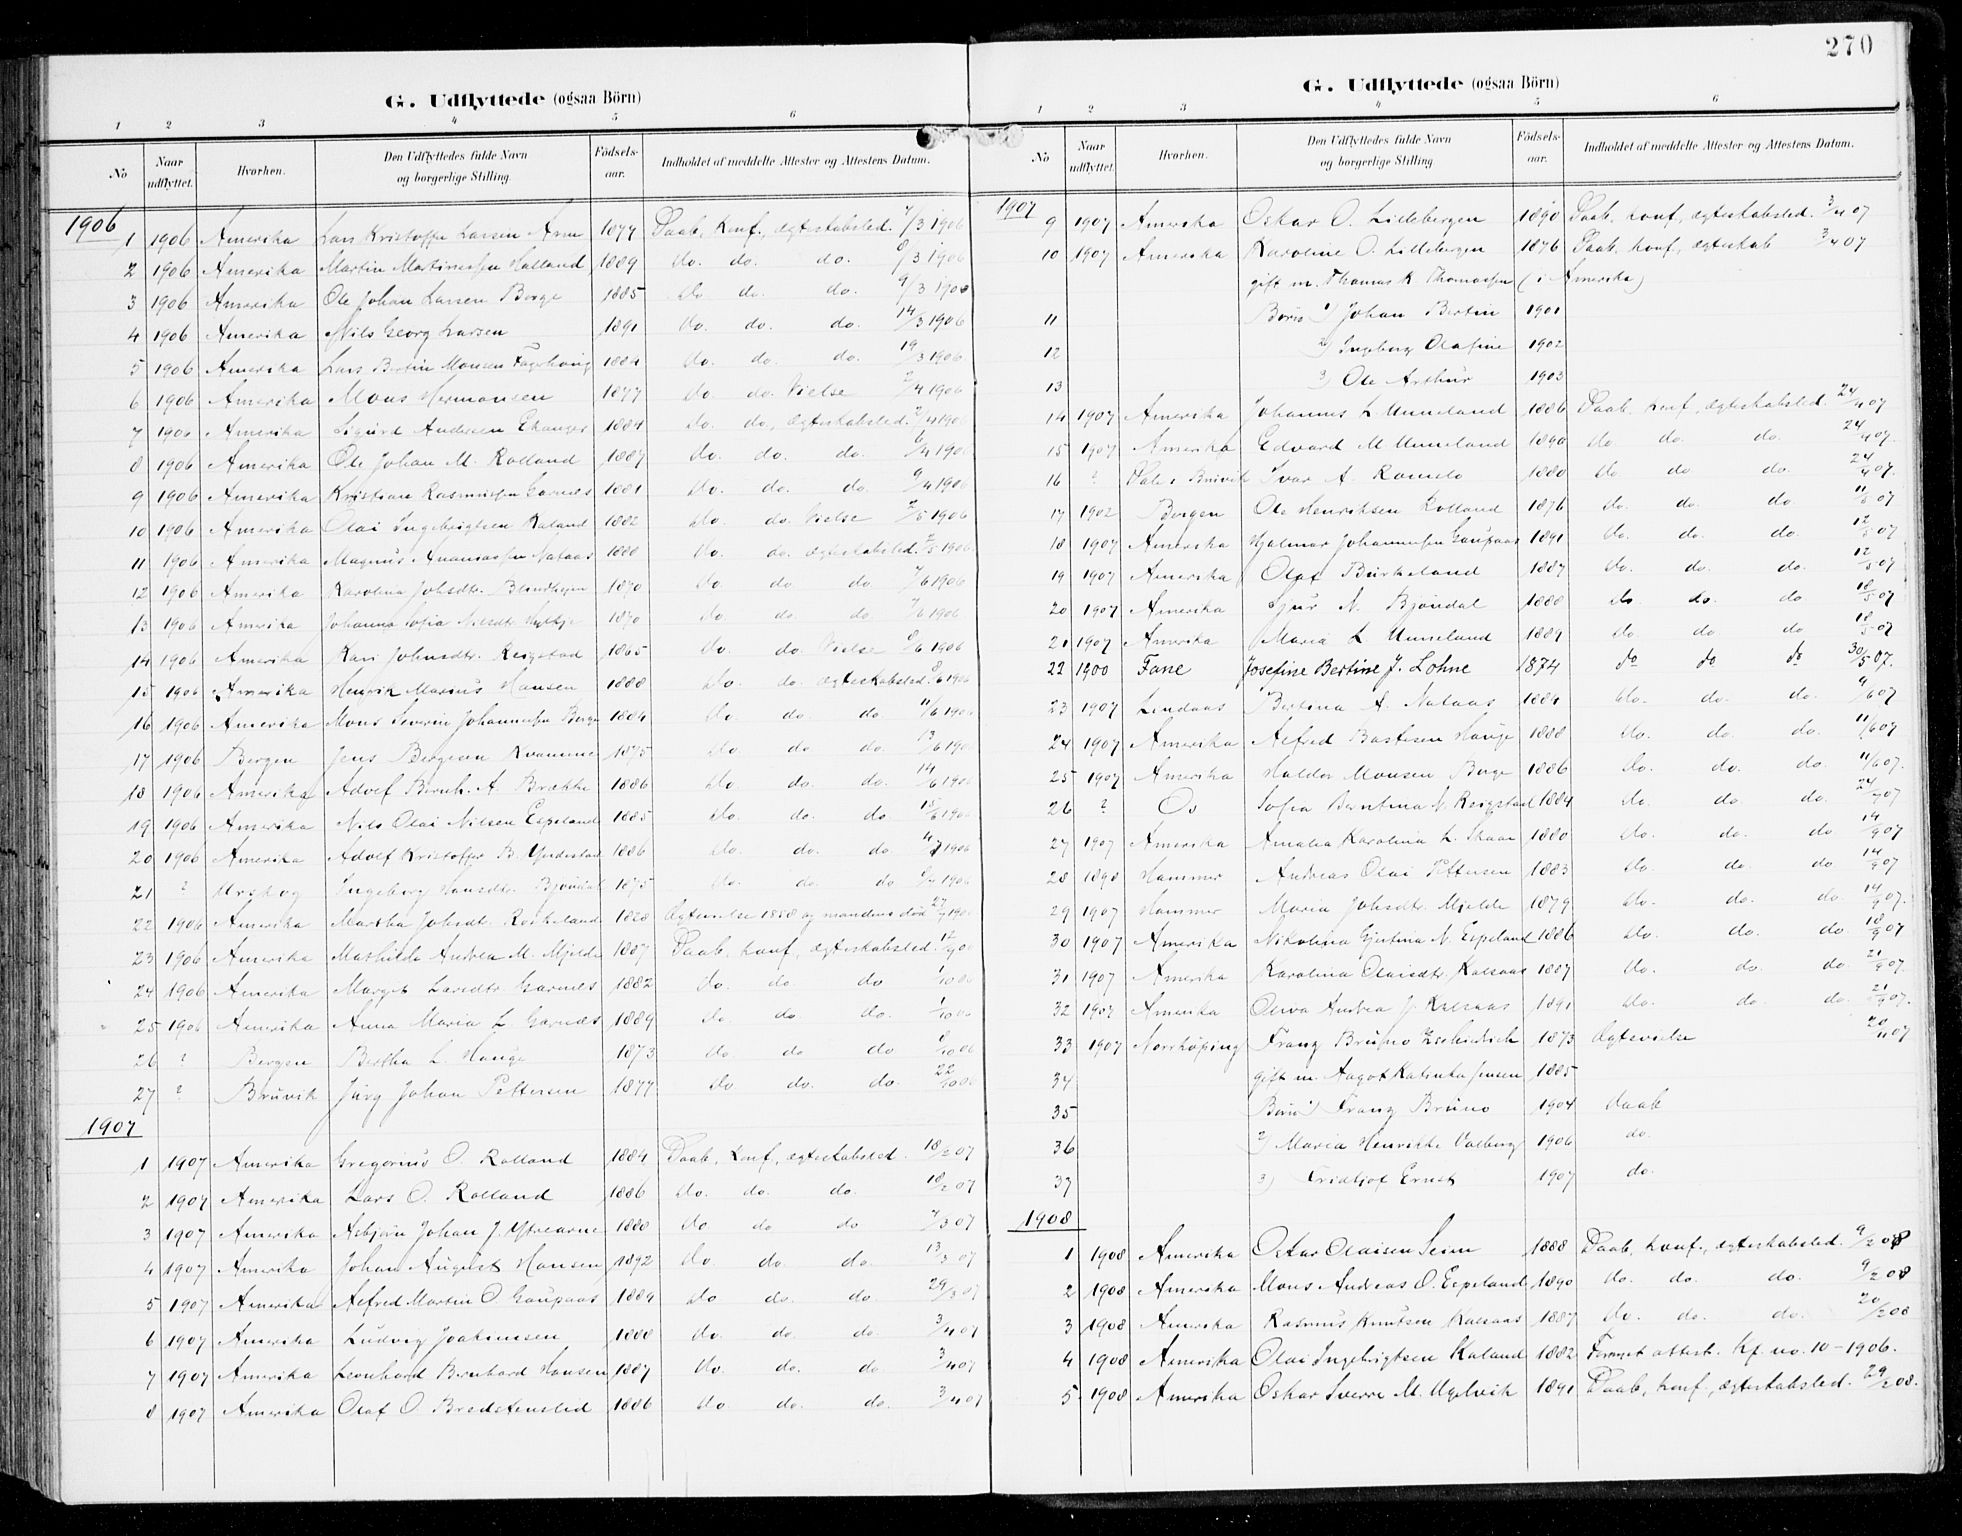 G. Udflyttede (ogsaa Börn)
1 2 3 4 5 6
No Naar udflyttet. Hvorhen. Den Udflyttedes fulde Navn og borgerlige Stilling. Födsels-aar. Indholdet af meddelte Attester og Attestens Datum.
1906
1 1906 Amerika Lars Kristoffer Larsen Arne 1877 Daab, Konf., ægteskabsled. 7/3 1906
2 1906 Amerika Martin Martinussen Halland 1889 do. do. do. 8/3 1906
3 1906 Amerika Ole Johan Larsen Borge 1885 do do. do. 9/3 1906
4 1906 Amerika Nils Georg Larsen 1891 do. do. do. 14/3 1906
5 1906 Amerika Lars Bertin Monsen 1884 do. do. do. 19/3 1906
6 1906 Amerika Mons Hermansen 1877 do do. Vielse 2/4 1906
7 1906 Amerika Sigurd Andersen Ekanger 1884 do. do., ægteskabsled. 2/4 1906
8 1906 Amerika Ole Johan M. Rolland 1887 do. do. do. 6/4 1906
9 1906 Amerika Kristian Rasmussen Garnes 1881 do. do. do. 9/4 1906
10 1906 Amerika Olai Ingebrigtsen Kaland 1882 do. do. Vielse 2/5 1906
11 1906 Amerika Magnus Ananiassen Nataas 1888 do. do. ægteskabsled. 2/5 1906
12 1906 Amerika Karolina Johsdtr. Blindheim 1870 do do. do. 7/6 1906
13 1906 Amerika Johanna Sofia Nilsdtr. 1870 do do do 7/6 1906
14 1906 Amerika Kari Johnsdtr. Reigstad 1865 do. do. Vielse 8/6 1906
15 1906 Amerika Henrik Marius Hansen 1888 do. do. ægteskabsled. 8/6 1906
16 1906 Amerika Mons Severin Johannessen Borge 1884 do do. do 11/6 1906
17 1906 Bergen Jens Bergean Kvamme 1875 do do do. 13/6 190
18 1906 Amerika Adolf Bernh. A. Brække 1886 do do. do. 14/6 1906
19 1906 Amerika Nils Olai Nilsen Espeland 1885 do. do. do 15/6 1906
20 1906 Amerika Adolf Kristoffer B. Yndestad 1886 do. do. do 4/7 1906
21 ? Urskog Ingeborg Hansdtr. Bjöndal 1875 do. do. do 1906
22 1906 Amerika Martha Johsdtr. Röikeland 1828 Ægtevielse 1858 og mandens död 27/ 1906
23 1906 Amerika Mathilda Andrea M. Mjelde 1887 Daab, konf., ægteskabsled. 12/9 06
24 1906 Amerika Margit Larsdtr. Garnes 1882 do. do. do 1/10 06
25 1906 Amerika Anna Maria L. Garnes 1889 do. do. do. 1/10 06
26 ? Bergen Bertha L. Hauge 1873 do do do 8/10 06
27 ? Bruvik Jürg Johan Pettersen 1877 do do. do. 22/10 06
1907
1 1907 Amerika Gregorius O. Rolland 1884 Daab, Konf., ægteskabsled. 18/2 07
2 1907 Amerika Lars O. Rolland 1886 do. do. do. 18/2 07
3 1907 Amerika Asbjörn Johan J. Ytrearne 1888 do do do 7/3 07
4 1907 Amerika Johan August Hansen 1892 do. do. do. 13/3 07
5 1907 Amerika Alfred Martin O. Gaupaas 1884 do do. do. 29/3 07
6 1907 Amerika Ludvig Joakimsen 1888 do. do. do. 3/4 07
7 1907 Amerika Leonhard Bernhard Hansen 1887 do. do. do 3/4 07
8 1907 Amerika Olaf O. Bredstenslid 1886 do. do. do. 3/4 07
270
G. Udflyttede (ogsaa Börn)
1 2 3 4 5 6
No Naar udflyttet. Hvorhen. Den Udflyttedes fulde Navn og borgerlige Stilling. Födsels-aar. Indholdet af meddelte Attester og Attestens Datum.
1907
9 1907 Amerika Oskar O. Lillebergen 1890 Daab, konf., ægteskabsled. 3/4 07
10 1907 Amerika Karoline O. Lillebergen 1876 Daab, konf., ægteskab 3/4 07
gift m. Thomas K. Thomassen (i Amerika)
11 Börn 1) Johan Bertin 1901
12 2) Ingeborg Olafine 1902
13 3) Ole Arthur 1903
14 1907 Amerika Johannes L. Unneland 1886 Daab, konf., ægteskabsled. 24/4 07
15 1907 Amerika Edvard M. Unneland 1890 do do. do. 24/4 07.
16 ? Vale i Bruvik Ivar A. Romslo 1880 do do do. 24/4 07.
17 1902 Bergen Ole Henriksen Rolland 1876 do. do. do 11/5 07
18 1907 Amerika Hjalmar Johannessen Gaupaas 1891 do. do. do. 12/5 07
19 1907 Amerika Olaf Burkeland 1887 do. do. do. 12/5 07
20 1907 Amerika Sjur N. Bjöndal 1888 do do. do 18/5 07
21 1907 Amerika Maria L. Unneland 1889 do do do 18/5 07
22 1900 Fane Josefine Bertine J. Lohne 1874 do do do 30/5 07.
23 1907 Lindaas Bertina A. Nataas 1884 do. do. do. 4/6 07
24 1907 Amerika Alfred Bastesen Hauge 1888 do. do. do. 11/6 07
25 1907 Amerika Haldor Monsen Borge 1886 do. do. do. 11/6 07.
26 ? Os Sofia Berntina N. Reigstad 1884 do. do do. 24/ 07
27 1907 Amerika Amalia Karolina L. Skaar 1880 do. do. do. 14/9 07
28 1898 Hammer Andreas Olai Pettersen 1883 do. do. do 14/9 07
29 1907 Hammer Maria Johsdtr. Mjelde 1879 do. do. do. 14/9 07.
30 1907 Amerika Nikolina Gjertina N. Espeland 1886 do. do. do. 18/9 07
31 1907 Amerika Karolina Olaisdtr. Kalsaas 1887 do. do. do. 21/9 07.
32 1907 Amerika Oliva Andrea J. Kalsaas 1891 do. do. do. 21/9 07.
33 1907 Norrköping Franz Bruno Zschietsch 1873 Ægtevielse 20/11 07
34 gift m. Aagot Katinka Jensen 1885
35 Börn 1) Franz Bruno 1904 daab
36 2) Maria Henrikke Valborg 1906 do.
37 3) Fridtjof Ernst 1907 do.
1908
1 1908 Amerika Oskar Olaisen Seim 1888 Daab, konf., ægteskabsled. 9/2 08
2 1908 Amerika Mons Andreas O. Espeland 1890 do. do. do. 9/2 08
3 1908 Amerika Rasmus Knutsen Kalsaas 1887 do. do. do. 20/2 08
4 1908 Amerika Olai Ingebrigtsen Kaland 1882 Fornyet attest. kf. no. 10 - 1906.
5 1908 Amerika Oskar Sverre M. Ugelvik 1891 Daab, konf., ægteskabsled. 29/2 08.